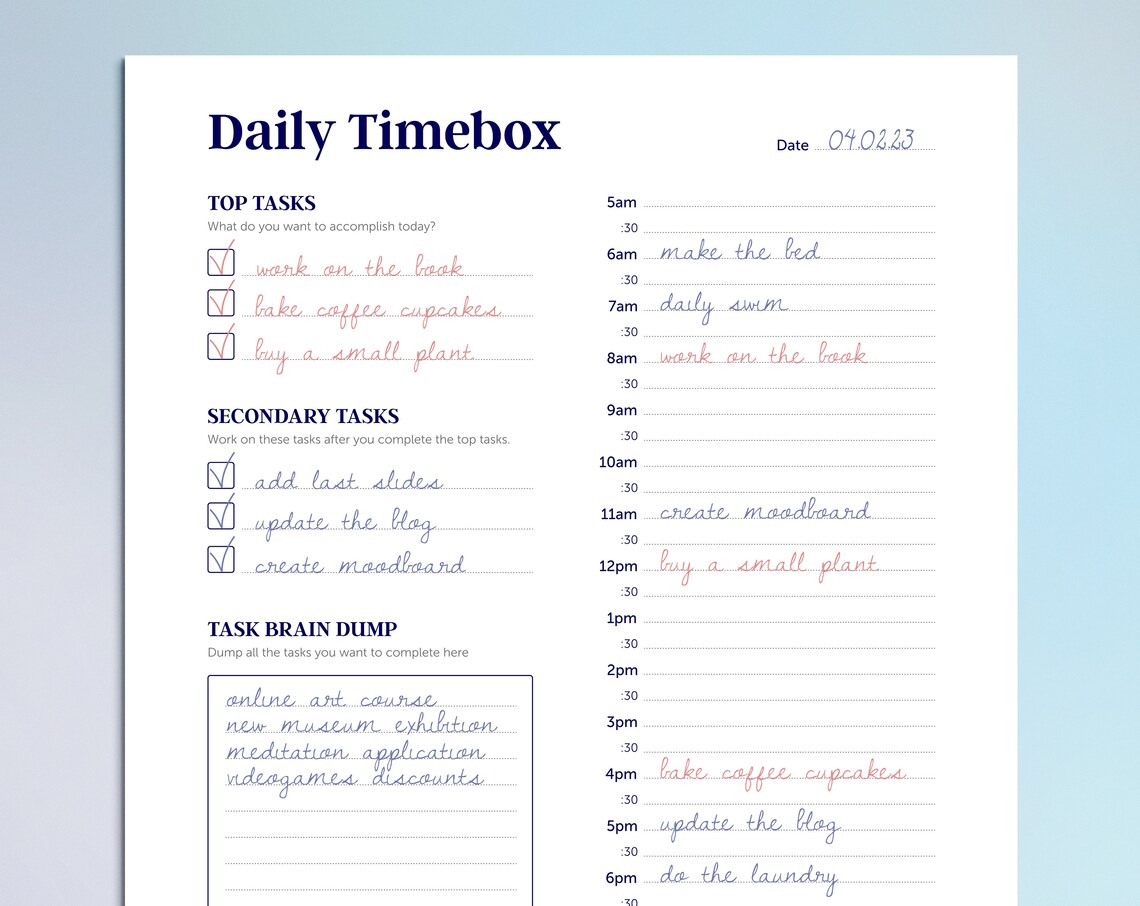 Daily Timebox
Date 04.02.23
TOP TASKS
What do you want to accomplish today?
work on the book
bake coffee cupcakes
buy a small plant
SECONDARY TASKS
Work on these tasks after you complete the top tasks.
add last slides
update the blog
create moodboard
TASK BRAIN DUMP
Dump all the tasks you want to complete here
online art course
new museum exhibition
meditation application
videogames discounts
5am
:30
6am make the bed
:30
7am daily swim
:30
8am work on the book
:30
9am
:30
10am
:30
11am create moodboard
:30
12pm buy a small plant
:30
1pm
:30
2pm
:30
3pm
:30
4pm bake coffee cupcakes
:30
5pm update the blog
:30
6pm do the laundry
:30